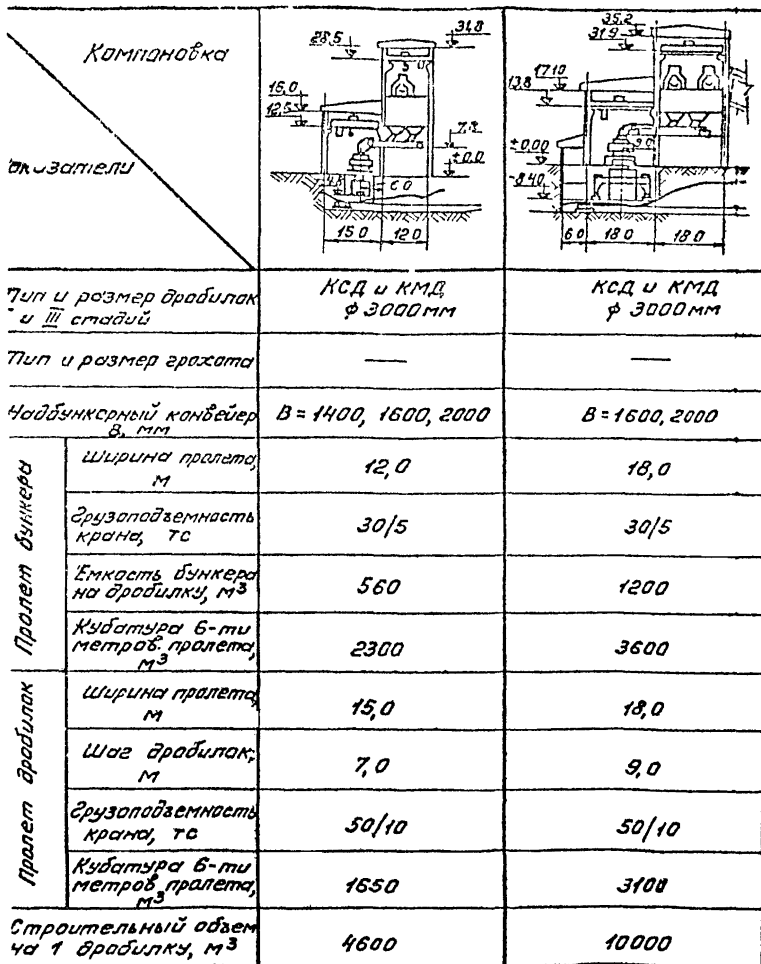 Компоновка
28,5
31,8
16,0
12,5
7,3
±0,0
6 0
15 0
12 0
35,2
31,9
17,10
13,8
9 0
±0,00
-8,40
6 0
18 0
18 0
оказатели
Тип и размер дробилок
и III стадий
КСД и КМД
ϕ 3000 мм
КСД и КМД
ϕ 3000 мм
Тип и размер грохота
—
—
Надбункерный конвейер
В, мм
В = 1400, 1600, 2000
В = 1600, 2000
Пролет бункера
Ширина пролета,
м
12,0
18,0
Грузоподъемность
крана, тс
30/5
30/5
Емкость бункера
на дробилку, м³
560
1200
Кубатура 6-ти
метров. пролета,
м³
2300
3600
Пролет дробилок
Ширина пролета,
м
15,0
18,0
Шаг дробилок,
м
7,0
9,0
Грузоподъемность
крана, тс
50/10
50/10
Кубатура 6-ти
метров. пролета,
м³
1650
3100
Строительный объем
на 1 дробилку, м³
4600
10000